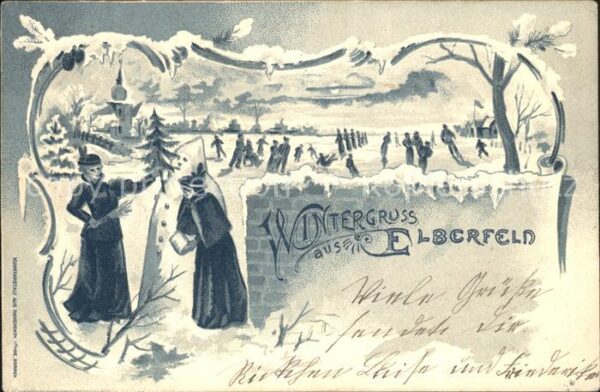 WINTERGRUSS
aus
ELBERFELD
Viele Grüße
sendet dir
Luise und Friederike